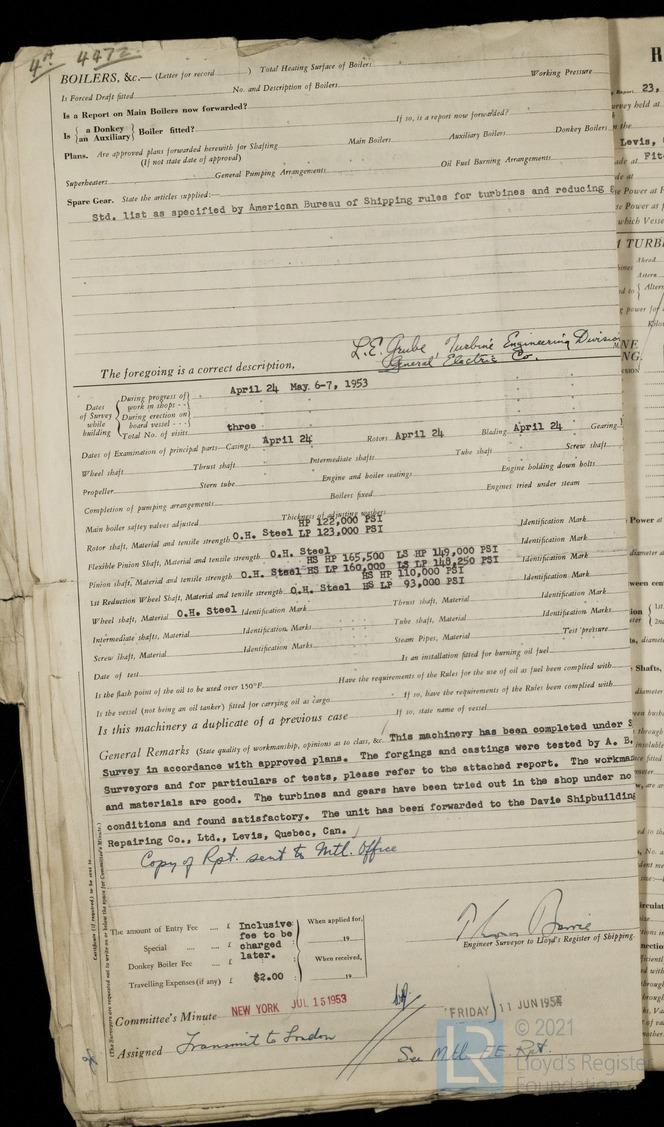 4472
BOILERS, &c.— (Letter for record ) Total Heating Surface of Boilers
Is Forced Draft fitted No. and Description of Boilers Working Pressure
Is a Report on Main Boilers now forwarded?
Is { a Donkey / an Auxiliary } Boiler fitted? If so, is a report now forwarded?
Plans. Are approved plans forwarded herewith for Shafting Main Boilers Auxiliary Boilers Donkey Boilers
(If not state date of approval)
Superheaters General Pumping Arrangements Oil Fuel Burning Arrangements
Spare Gear. State the articles supplied:—
Std. list as specified by American Bureau of Shipping rules for turbines and reducing
L.E. Grube, Turbine Engineering Division
General Electric Co.
The foregoing is a correct description,
Dates of Survey while building
During progress of work in shops - - April 24 May 6-7, 1953
During erection on board vessel - - -
Total No. of visits three
Dates of Examination of principal parts—Casings April 24 Rotors April 24 Blading April 24 Gearing
Wheel shaft Thrust shaft Intermediate shafts Tube shaft Screw shaft
Propeller Stern tube Engine and boiler seatings Engine holding down bolts
Completion of pumping arrangements Boilers fixed Engines tried under steam
Main boiler saftey valves adjusted Thickness of adjusting washers
HP 122,000 PSI
Rotor shaft, Material and tensile strength O.H. Steel LP 123,000 PSI Identification Mark
Flexible Pinion Shaft, Material and tensile strength O.H. Steel Identification Mark
HS HP 165,500 LS HP 149,000 PSI
Pinion shaft, Material and tensile strength O.H. Steel HS LP 160,000 LS LP 148,250 PSI Identification Mark
HS HP 110,000 PSI
1st Reduction Wheel Shaft, Material and tensile strength O.H. Steel HS LP 93,000 PSI Identification Mark
Wheel shaft, Material O.H. Steel Identification Mark Thrust shaft, Material Identification Mark
Intermediate shafts, Material Identification Marks Tube shaft, Material Identification Marks
Screw shaft, Material Identification Marks Steam Pipes, Material Test pressure
Date of test Is an installation fitted for burning oil fuel
Is the flash point of the oil to be used over 150°F. Have the requirements of the Rules for the use of oil as fuel been complied with
Is the vessel (not being an oil tanker) fitted for carrying oil as cargo If so, have the requirements of the Rules been complied with
Is this machinery a duplicate of a previous case If so, state name of vessel
General Remarks (State quality of workmanship, opinions as to class, &c. This machinery has been completed under
Survey in accordance with approved plans. The forgings and castings were tested by A. B.
Surveyors and for particulars of tests, please refer to the attached report. The
and materials are good. The turbines and gears have been tried out in the shop under no
conditions and found satisfactory. The unit has been forwarded to the Davie Shipbuilding
Repairing Co., Ltd., Levis, Quebec, Can.
Copy of Rpt. sent to Mtl. Office
The amount of Entry Fee .... £ Inclusive fee to be charged later. When applied for,
Special .... .... £ 19
Donkey Boiler Fee .... £ When received,
Travelling Expenses (if any) £ $2.00 19
Engineer Surveyor to Lloyd's Register of Shipping.
Committee's Minute NEW YORK JUL 15 1953 FRIDAY 11 JUN 1954
Assigned Transmit to London
See Mtl. F.E. Rpt.
Certificate (if required) to be sent to
(The Surveyors are requested not to write on or below the space for Committee's Minute.)
23,
Levis,
TURB
© 2021
Lloyd's Register
Foundation